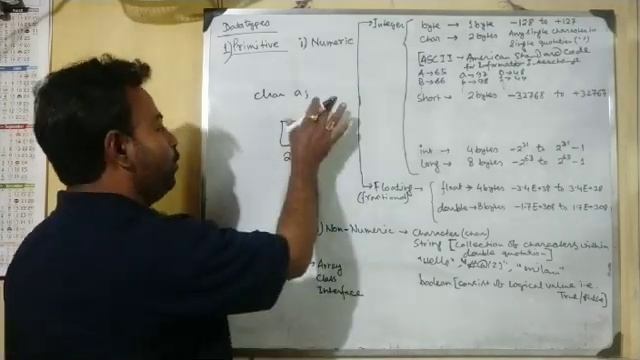 Datatypes
1) Primitive i) Numeric
Integer
byte → 1 byte -128 to +127
char → 2 bytes Any single character in single quotation (' ')
[ASCII → American Standard Code for Information Interchange
A → 65 a → 97 0 → 48
B → 66 b → 98 1 → 49
short → 2 bytes -32768 to +32767
int → 4 bytes -2^31 to 2^31 - 1
long → 8 bytes -2^63 to 2^63 - 1
char a;
2
Floating (fractional)
float → 4 bytes -3.4E+38 to 3.4E+38
double → 8 bytes -1.7E+308 to 1.7E+308
Non-Numeric → Character (char)
String [Collection of characters within double quotation]
"Hello", "milan"
boolean [consist of Logical value i.e. True/False]
Array
Class
Interface